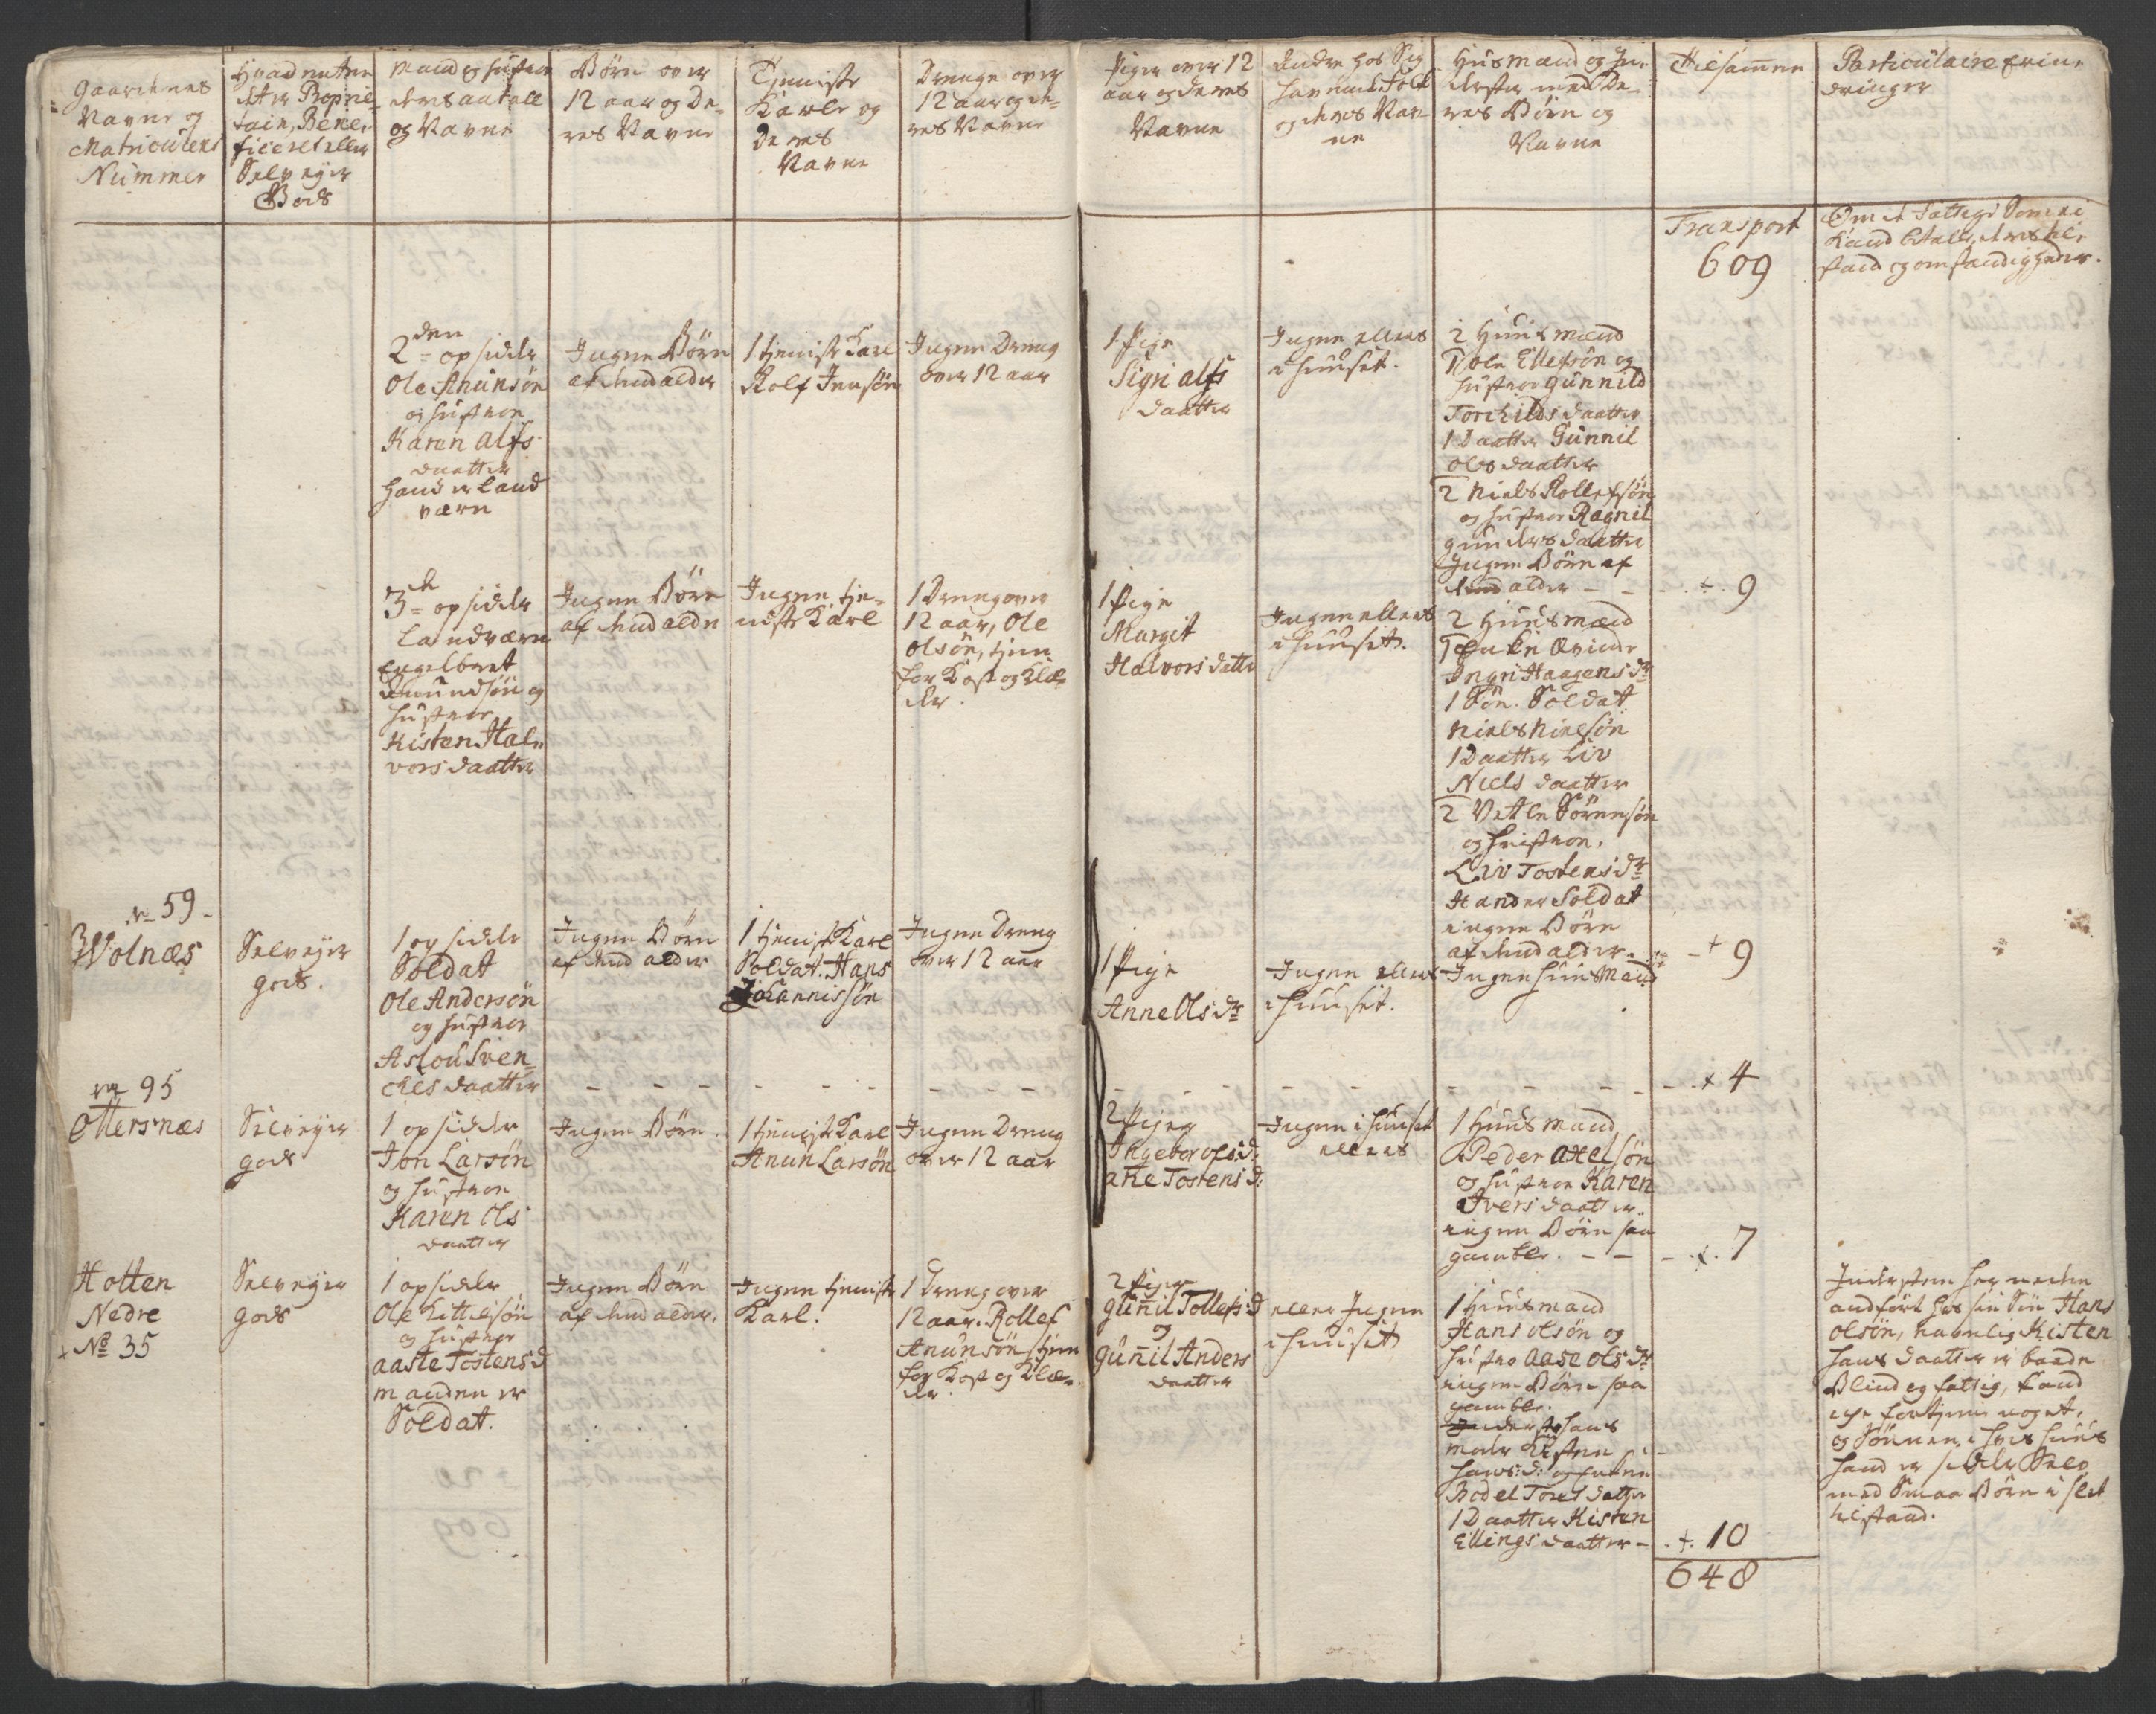 Gaardenes
Navne og
Matriculens
Nummer
Hvad enten
det er Proprie
tair, Bene-
ficeret eller
Selveyer
Gods
Mand og hustrue
deres antall
og Navne
Børn over
12 aar og De-
res Navne
Tjeniste
Karle og
Deres
Navne
Drenge over
12 aar og de-
res Navne
Piger over 12
aar og deres
Navne
Andre hos Sig
havende Folk
og deres Nav-
ne
Husmænd og In-
derster med De-
res Børn og
Navne
Tilsamen
Particulaire Erin-
dringer
Transport
609
Om de Fattige Som ei
Kand betale, deres til-
stand og omstændigheder.
2den opsider
Ole Anunsøn
og hustrue
Karen Alfs
daatter
hand er Land
værn
Ingen Børn
af den alder
1 tjeniste Karl
Rolf Jensøn
Ingen Dreng
over 12 aar
1 Pige
Sigri Alfs
daatter
Ingen ellers
i huuset.
2 Huusmænd
1 Ole Ellefsøn og
hustrue Gunnild
Torchilds daatter
1 Daatter Gunnil
Ols daatter
2 Niels Rollefsøn
og hustrue Ragnil
Gunders daatter
Ingen Børn af
den alder - - +. 9
3de opsider
Landværn
Engelbret
Amundsøn og
hustrue
Kisten Hal-
vors daatter
Ingen Børn
af den alder
Ingen tje-
niste Karl
1 Dreng over
12 aar, Ole
Olsøn, tjen
for Kost og Klæ-
der.
1 Pige
Margit
Halvors datter
Ingen ellers
i huuset.
2 Huusmænd
1 Enke
Ingri Haagens dr
1 Søn. Soldat
Niels Nielsøn
1 Daatter Liv
Niels daatter
2 Vetle Sørensøn
og hustrue,
Liv Tostens dr
Hand er Soldat
ingen Børn
af den alder. - + 9
n 59 -
Wolnæs
Selveyer
gods.
1 opsider
Soldat
Ole Andersøn
og hustrue
Aslou Sven-
ches daatter
Ingen Børn
af den alder
1 tjeniste Karl
Soldat. Hans
Johannissøn
Ingen Dreng
over 12 aar
1 Pige
Anne Ols dr
Ingen ellers
i huuset.
Ingen huusmand
- - - + 4
n 95
Ottersnæs
Selveyer
gods
1 opsider
Jon Larsøn
og hustrue
Karen Ols
daatter
Ingen Børn.
1 tjeniste Karl
Anun Larsøn
Ingen Dreng
over 12 aar
2 Piger
Ingebor Ols: d:
Tostens d:
Ingen i huuset
ellers
1 Huusmand
Peder Axelsøn
og hustrue Karen
Ivers daatter.
ingen Børn saa
gamble. - - - +. 7
Hotten
Nedre
No 35
Selveyer
gods
1 opsider
Ole Kittilsøn
og hustrue
Aaste Tostens d
manden er
Soldat.
Ingen Børn
af den alder.
Ingen tjeniste
Karl.
1 Dreng over
12 aar. Rollef
Anunsøn tjen
for Kost og Klæ-
der.
2 Piger
Gunil Tollefs: d
og
Gunil Anders
daatter
eller Ingen
i huuset
1 Huusmand
Hans Olsøn og
hustrue Aase Ols dr
ingen Børn saa
gamble.
Inderste hans
moder Kisten
Hans: d:
Bodel Tores datter
1 Daatter Kisten
Ellings daatter - . +. 10
648
Indersten her neden
andført hos sin Søn Hans
Olsøn, navnlig Kisten
Hans daatter er baade
Blind og fattig, kand
icke fortjene noget,
og Sønnen i hvis huus
hand er sidder Selv
med Smaa Børn i slet
tilstand.